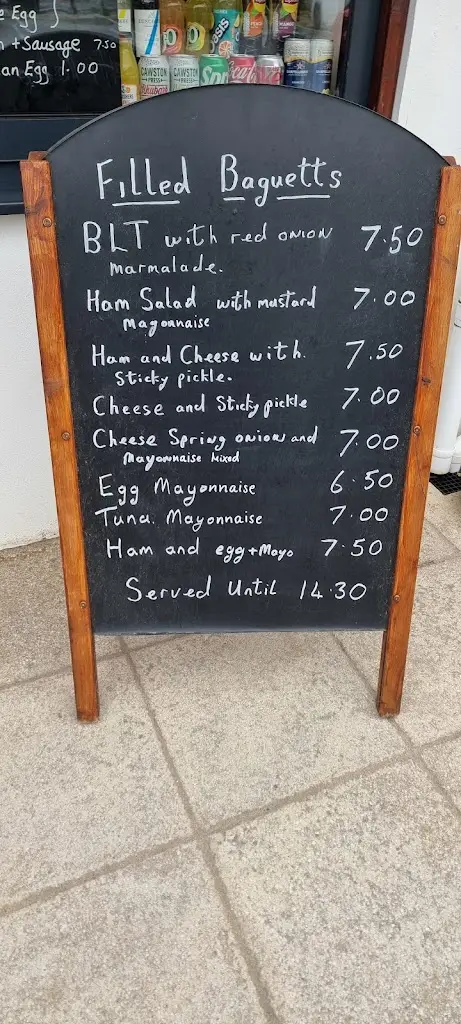 e Egg
+ Sausage 7.50
an Egg 1.00
CAWSTON PRESS
CAWSTON PRESS
Rhubarb
Filled Baguetts
BLT with red onion 7.50
marmalade.
Ham Salad with mustard 7.00
mayonnaise
Ham and Cheese with. 7.50
Sticky pickle.
Cheese and Sticky pickle 7.00
Cheese Spring onion and 7.00
Mayonnaise Mixed
Egg Mayonnaise 6.50
Tuna. Mayonnaise 7.00
Ham and egg + Mayo 7.50
Served Until 14.30